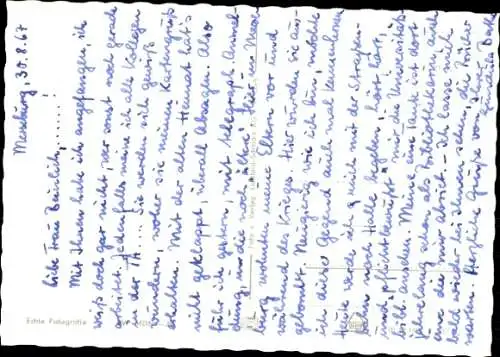 Merseburg, 30.8.67
Liebe Frau Beinlich, .....!
Mit Ihnen habe ich angefangen, ich
weiß doch gar nicht, wer sonst noch gerade
arbeitet. Jedenfalls meine ich alle Kollegen
in der Th.... Sie werden sich gewiß
wundern, woher sie meinen Kartengruß
erhalten. Mit der alten Heimat hat's
nicht geklappt, überall Absagen. Also
fuhr ich gestern, mit Telegramm Anmel-
dung, in die "noch ältere". Hier in Merse-
burg wohnten meine Eltern vor und
während des Krieges. Hier wurden sie aus-
gebombt. Neugierig wie ich bin, möchte
ich diese Gegend auch mal kennenlernen
Heute werde ich mich mit der Straßen-
bahn nach Halle begeben,
mir pflichtbewußt die Universitäts-
bibl. ansehen. Meine eine Tante ist dort
jahrelang schon als Bibliothekarin, auch
eine die mir abriet. - Ich lasse mich
bald wieder bei Ihnen sehen, die Bücher
warten. Herzliche Grüße von Ihrer
Echte Fotografie